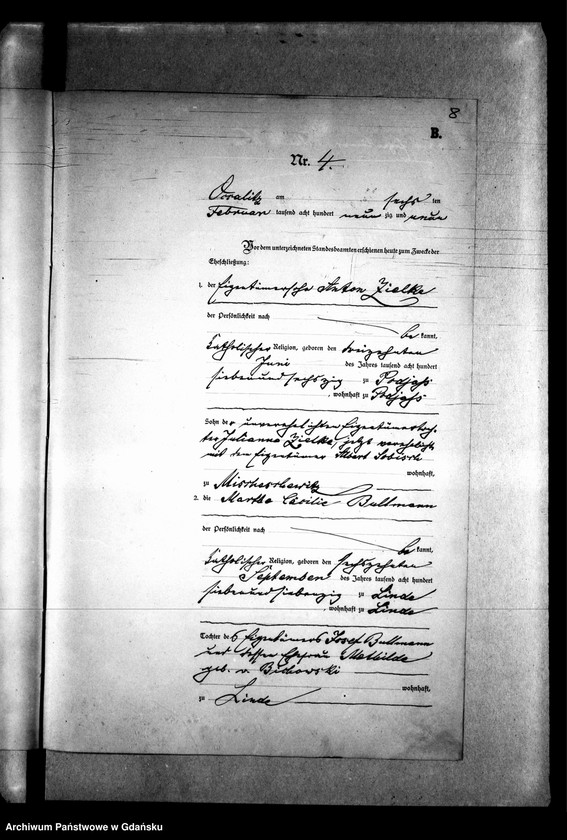 8
B.
Nr. 4.
Occalitz am sechs ten
Februar tausend acht hundert neun zig und neun
Vor dem unterzeichneten Standesbeamten erschienen heute zum Zwecke der
Eheschließung:
1. der Eigentümersohn Anton Zielke
der Persönlichkeit nach
be kannt,
katholischer Religion, geboren den dreizehnten
Juni des Jahres tausend acht hundert
siebenundsechszig zu Podjaß
, wohnhaft zu Podjaß
Sohn der unverehelichten Eigentümertoch-
ter Julianna Zielke, jetzt verehelicht
mit dem Eigentümer Albert
wohnhaft,
zu Mischischewitz
2. die Martha Cäcilie Bullmann
der Persönlichkeit nach
be kannt,
katholischer Religion, geboren den sechszehnten
September des Jahres tausend acht hundert
siebenundsiebenzig zu Linde
, wohnhaft zu Linde
Tochter des Eigentümers Josef Bullmann
und dessen Ehefrau Mathilde
geb. v.
wohnhaft,
zu Linde
Archiwum Państwowe w Gdańsku